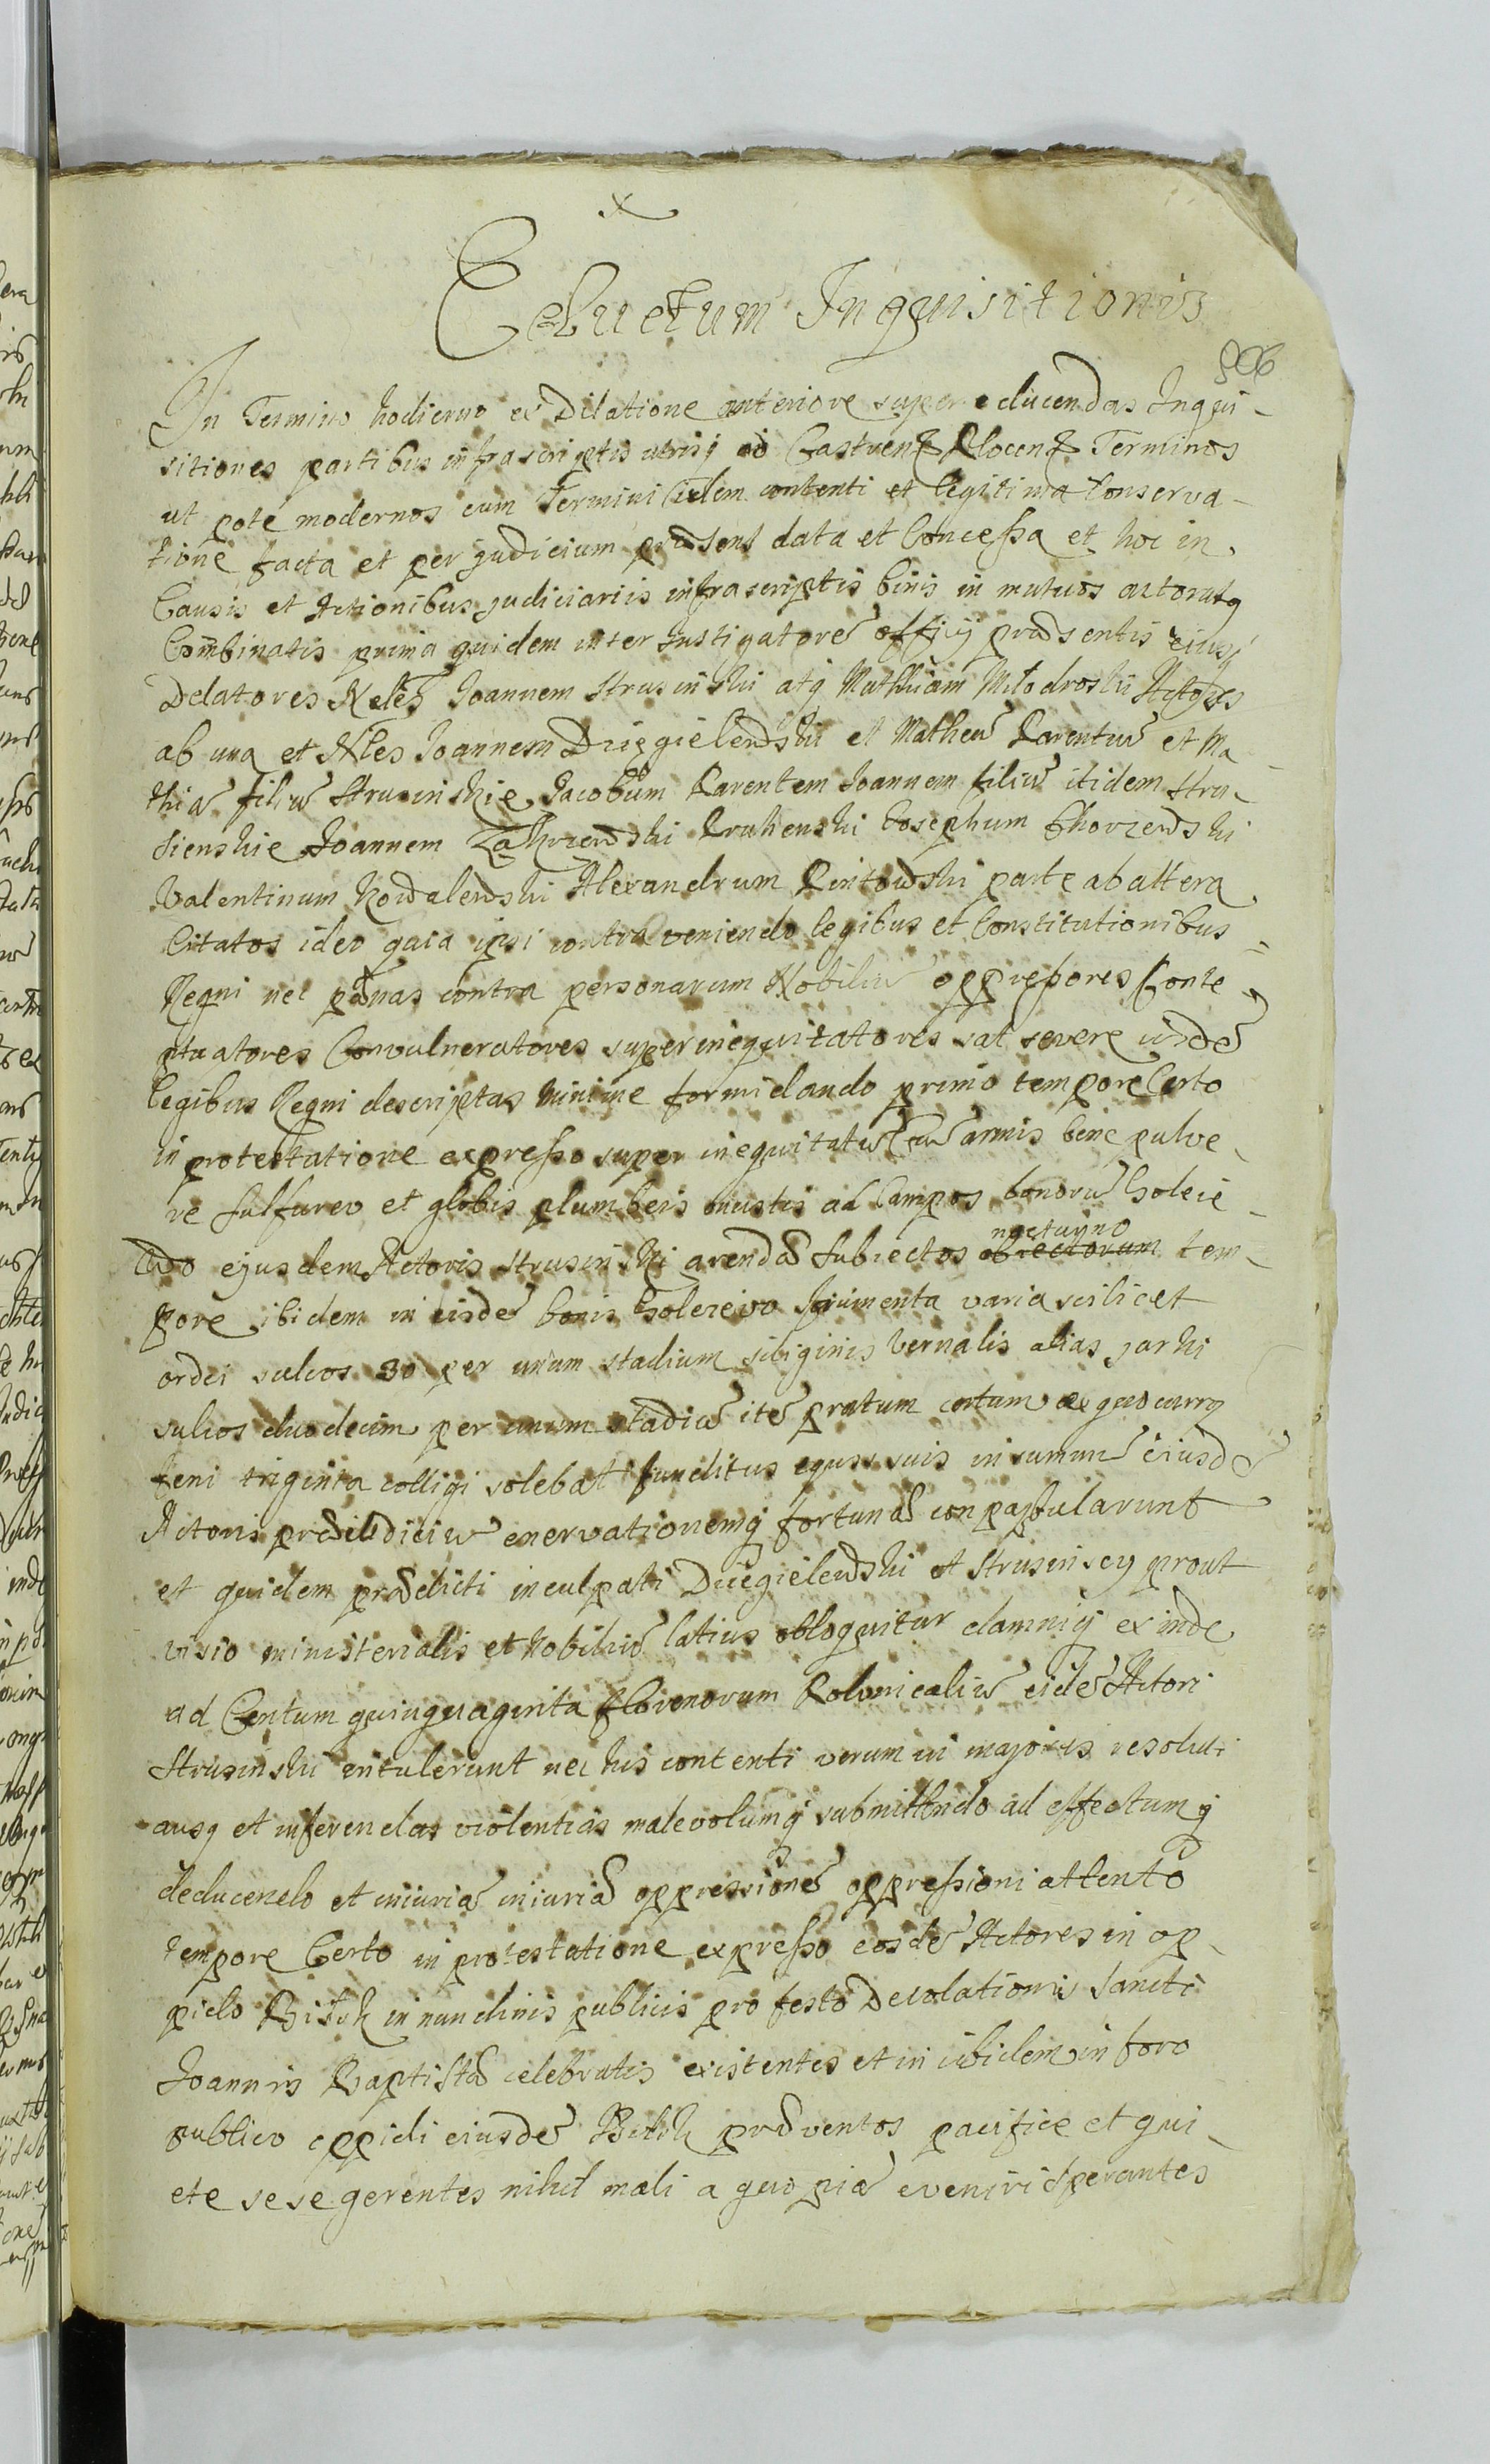 Eductum Inquisitionis
906
In Termino hodierno ex Dilatione anteriore super educendas Inqui-
sitiones partibus infrascriptis utrisq ad Castren Plocen Terminos
ut pote modernos cum Termini itidem contenti et legitima Conserva-
tione facta et per judicium præsens data et Concessa et hoc in
Causis et Actionibus judiciariis infrascriptis binis in mutuos actoratq
Combinatis prima quidem inter Instigatore officij præsentis eiusq
Delatores Nles Joannem Strusinski atq Mathiam Modroski Actores
ab una et Nles Joannem Dziegielewski et Matheu Parentem et Ma
thia filiu Strusinskie Jacobum Parentem Joannem filiu itidem Stru-
sienskie Joannem Zakrzewski Krukenski Josephum Chorzewski
Valentinum Kowalewski Alexandrum Pintowski parte ab altera
Citatos ideo quia ipsi contraveniendo legibus et Constitutionibus
Regni nec pænas contra personarum Nobiliu oppressores Conte
ptuatores Convulneratores superinequitatores sat severe iisde
legibus Regni descriptas minime formidando primo tempore Certo
in protestatione expresso super inequitatu cu armis bene pulve-
re sulfureo et globis plumbeis onustis ad Campos bonoru Goleie-
wo ejusdem Actoris Strusinski arendæ subiectos obiectorum nocturno tem-
pore ibidem in eisde bonis Goleiewo frumenta varia scilicet
ordei sulcos 30 per unum stadium siliginis vernalis alias jarki
sulcos duodecim per unum stadiu ite pratum certum ex quo currq
feni triginta colligi solebat funditus equis suis in summu eiusde
Actoris præiudiciu enervationemq fortunæ conpascularunt
et quidem prædicti inculpati Dziegielewski et Strusinscy prout
visio ministerialis et Nobiliu latius obloquitur damniq ex inde
ad Centum quinquaginta Florenorum Polonicaliu eide Actori
Strusinski intulerunt nec his contenti verum in majores resoluti
ausq et inferendas violentias malevolumq submittendo ad effectumq
deducendo et iniuria iniuriæ oppressione oppressioni attento
tempore Certo in protestatione expresso eosde Actores in op-
pido Bielsk in nundinis publicis pro festo Decolationis Sancti
Joannis Baptistæ celebratis existentes et in ibidem in foro
publico oppidi eiusde Bielsk præventos pacifice et qui-
ete sese gerentes nihil mali a quo pia eveniri sperantes